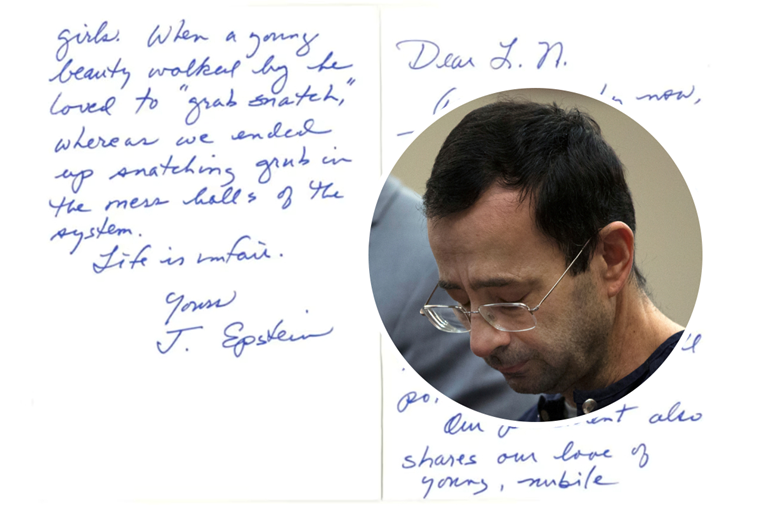 girls. When a young
beauty walked by he
loved to "grab snatch,"
whereas we ended
up snatching grub in
the mess halls of the
system.
Life is unfair.
Yours
J. Epstein
Dear L. N.
now,
Our also
shares our love of
young, nubile